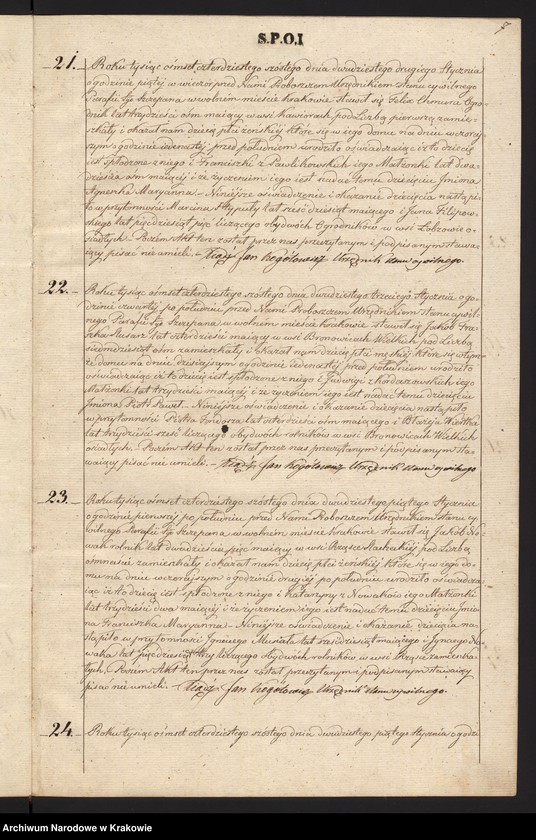 S.P.O.I
7
21. Roku tysiąc ośmset czterdziestego szóstego dnia dwudziestego drugiego Stycznia
o godzinie piątej w wieczór przed Nami Proboszczem Urzędnikiem Stanu cywilnego
Parafii Sgo Szczepana w wolnem mieście Krakowie stawił się Felix Chmura Ogo-
dnik lat trzydzieści ośm mający w wsi Kawiorach pod Liczbą pierwszą zamiesz-
kały i okazał nam dziecię płci żeńskiej które się w jego domu na dniu wczoraj-
szym o godzinie jedenastej przed południem urodziło oświadczając iż to dziecię
jest spłodzone z niego i Franciszki z Pawlikowskich jego Małżonki lat dwa-
dzieścia ośm mającej i że życzeniem jego jest nadać temu dziecięciu Imiona
Agneszka Maryanna – Niniejsze oświadczenie i okazanie dziecięcia nastąpi-
ło w przytomności Marcina lat sześćdziesiąt mającego i Jana Filipow-
skiego lat pięćdziesiąt pięć liczącego obydwóch Ogrodników w wsi Łobzowie o-
siadłych. Poczem Akt ten został przez nas przeczytanym i podpisanym stawa-
jący pisać nie umieli. – Xiądz Jan Urzędnik Stanu cywilnego.
22. Roku tysiąc ośmset czterdziestego szóstego dnia dwudziestego trzeciego Stycznia o go-
dzinie czwartej po południu przed Nami Proboszczem Urzędnikiem Stanu cywil-
nego Parafii Sgo Szczepana w wolnem mieście Krakowie stawił się Jakób
lat czterdzieści mający w wsi Bronowicach Wielkich pod Liczbą
siedmdziesiąt ośm zamieszkały i okazał nam dziecię płci męskiej które się w tym-
że domu na dniu dzisiajszym o godzinie jedenastej przed południem urodziło
oświadczając iż to dziecię jest spłodzone z niego i Jadwigi z jego
Małżonki lat trzydzieści mającej i że życzeniem jego jest nadać temu dziecięciu
Imiona Piotr Paweł. – Niniejsze oświadczenie i okazanie dziecięcia nastąpiło
w przytomności Piotra lat czterdzieści ośm mającego i Błażeja
lat trzydzieści sześć liczącego obydwóch rolników w wsi Bronowicach Wielkich
osiadłych. Poczem Akt ten został przez nas przeczytanym i podpisanym sta-
wający pisać nie umieli. – Xiądz Jan Urzędnik Stanu cywilnego
23. Roku tysiąc ośmset czterdziestego szóstego dnia dwudziestego piątego Stycznia
o godzinie pierwszej po południu przed Nami Proboszczem Urzędnikiem Stanu cy-
wilnego Parafii Sgo Szczepana w wolnem mieście Krakowie stawił się Jakób No-
wak rolnik lat dwadzieścia pięć mający w wsi Rząsce Szlacheckiej pod Liczbą
ośmnaście zamieszkały i okazał nam dziecię płci żeńskiej które się w jego do-
mu na dniu wczorajszym o godzinie drugiej po południu urodziło oświadcza-
jąc iż to dziecię jest spłodzone z niego i Katarzyny z Nowaków jego Małżonki
lat trzydzieści dwa mającej i że życzeniem jego jest nadać temu dziecięciu Imio-
na Franciszka Maryanna. – Niniejsze oświadczenie i okazanie dziecięcia na-
stąpiło w przytomności Ignacego Musiała lat sześćdziesiąt mającego i Ignacego No-
waka lat pięćdziesiąt trzy liczącego obydwóch rolników w wsi Rząsce zamieszka-
łych. Poczem Akt ten przez nas został przeczytanym i podpisanym stawający
pisać nie umieli. – Xiądz Jan Urzędnik Stanu cywilnego.
24. Roku tysiąc ośmset czterdziestego szóstego dnia dwudziestego piątego Stycznia o godzi
Archiwum Narodowe w Krakowie